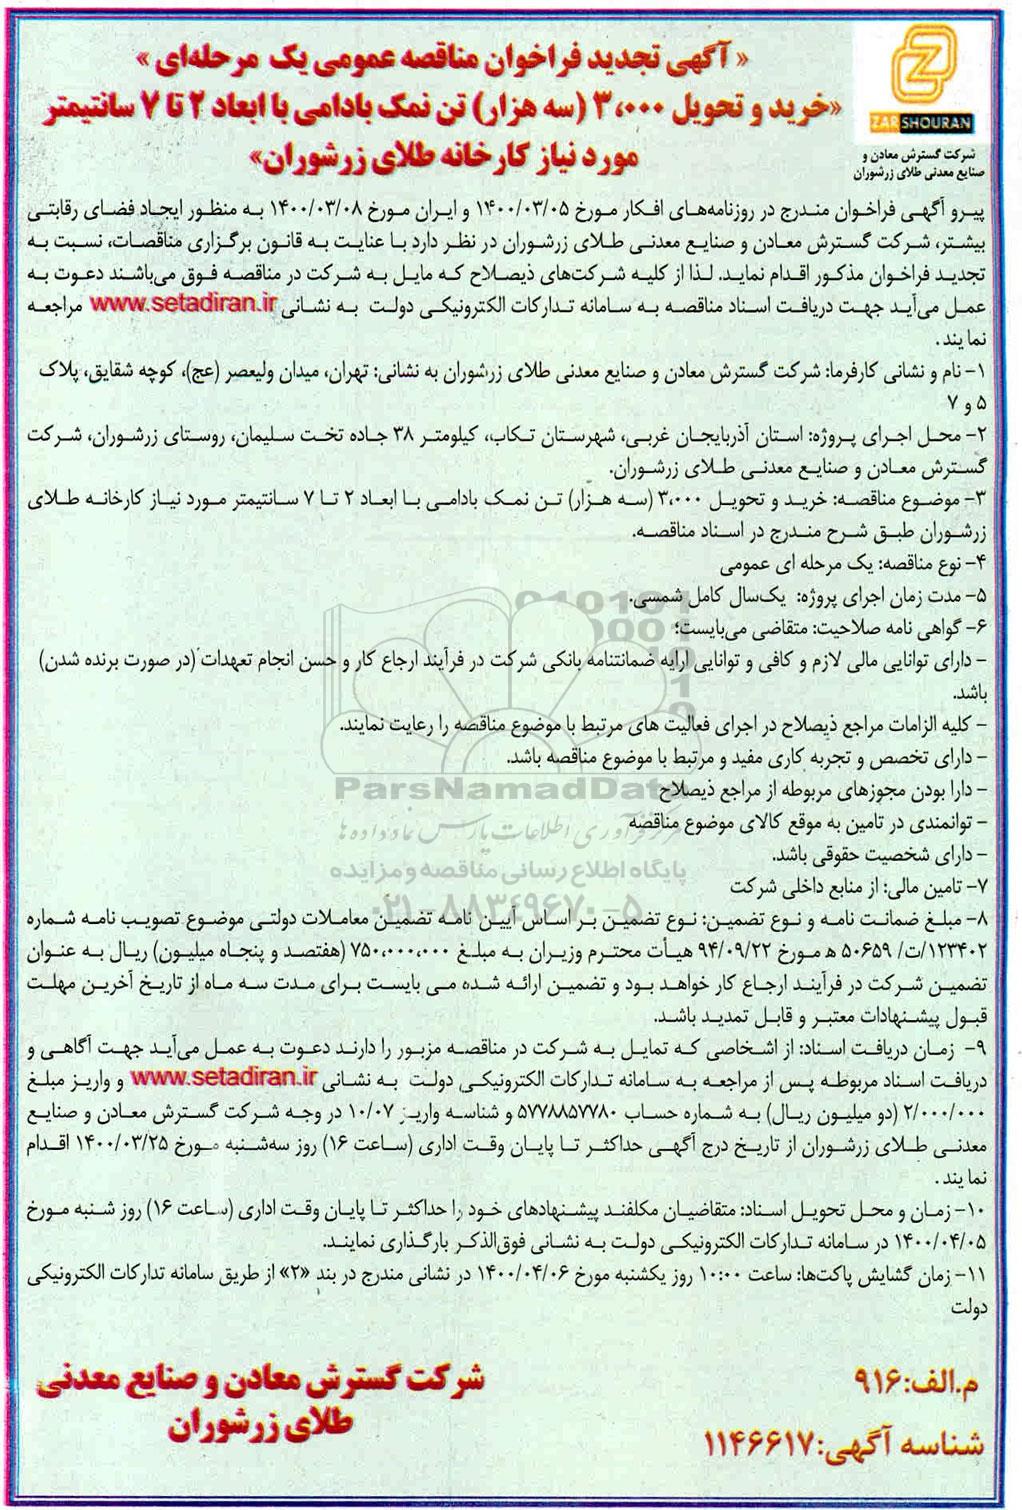 « آگهی تجدید فراخوان مناقصه عمومی یک مرحله‌ای »
«خرید و تحویل ۳،۰۰۰ (سه هزار) تن نمک بادامی با ابعاد ۲ تا ۷ سانتیمتر
مورد نیاز کارخانه طلای زرشوران»
ZARSHOURAN
شرکت گسترش معادن و
صنایع معدنی طلای زرشوران
پیرو آگهی فراخوان مندرج در روزنامه‌های افکار مورخ ۱۴۰۰/۰۳/۰۵ و ایران مورخ ۱۴۰۰/۰۳/۰۸ به منظور ایجاد فضای رقابتی
بیشتر، شرکت گسترش معادن و صنایع معدنی طلای زرشوران در نظر دارد با عنایت به قانون برگزاری مناقصات، نسبت به
تجدید فراخوان مذکور اقدام نماید. لذا از کلیه شرکت‌های ذیصلاح که مایل به شرکت در مناقصه فوق می‌باشند دعوت به
عمل می‌آید جهت دریافت اسناد مناقصه به سامانه تدارکات الکترونیکی دولت به نشانی www.setadiran.ir مراجعه
نمایند.
۱- نام و نشانی کارفرما: شرکت گسترش معادن و صنایع معدنی طلای زرشوران به نشانی: تهران، میدان ولیعصر (عج)، کوچه شقایق، پلاک
۵ و ۷
۲- محل اجرای پروژه: استان آذربایجان غربی، شهرستان تکاب، کیلومتر ۳۸ جاده تخت سلیمان، روستای زرشوران، شرکت
گسترش معادن و صنایع معدنی طلای زرشوران.
۳- موضوع مناقصه: خرید و تحویل ۳،۰۰۰ (سه هزار) تن نمک بادامی با ابعاد ۲ تا ۷ سانتیمتر مورد نیاز کارخانه طلای
زرشوران طبق شرح مندرج در اسناد مناقصه.
۴- نوع مناقصه: یک مرحله ای عمومی
۵- مدت زمان اجرای پروژه: یک‌سال کامل شمسی.
۶- گواهی نامه صلاحیت: متقاضی می‌بایست؛
- دارای توانایی مالی لازم و کافی و توانایی ارایه ضمانتنامه بانکی شرکت در فرآیند ارجاع کار و حسن انجام تعهدات (در صورت برنده شدن)
باشد.
- کلیه الزامات مراجع ذیصلاح در اجرای فعالیت های مرتبط با موضوع مناقصه را رعایت نمایند.
- دارای تخصص و تجربه کاری مفید و مرتبط با موضوع مناقصه باشد.
- دارا بودن مجوزهای مربوطه از مراجع ذیصلاح
ParsNamadData
- توانمندی در تامین به موقع کالای موضوع مناقصه
مرکز فرآوری اطلاعات پارس نماد داده ها
- دارای شخصیت حقوقی باشد.
پایگاه اطلاع رسانی مناقصه و مزایده
۷- تامین مالی: از منابع داخلی شرکت
۰۲۱-۸۸۳۴۹۶۷۰-۵
۸- مبلغ ضمانت نامه و نوع تضمین: نوع تضمین بر اساس آیین نامه تضمین معاملات دولتی موضوع تصویب نامه شماره
۱۲۳۴۰۲/ت/ ۵۰۶۵۹ ه مورخ ۹۴/۰۹/۲۲ هیأت محترم وزیران به مبلغ ۷۵۰،۰۰۰،۰۰۰ (هفتصد و پنجاه میلیون) ریال به عنوان
تضمین شرکت در فرآیند ارجاع کار خواهد بود و تضمین ارائه شده می بایست برای مدت سه ماه از تاریخ آخرین مهلت
قبول پیشنهادات معتبر و قابل تمدید باشد.
۹- زمان دریافت اسناد: از اشخاصی که تمایل به شرکت در مناقصه مزبور را دارند دعوت به عمل می‌آید جهت آگاهی و
دریافت اسناد مربوطه پس از مراجعه به سامانه تدارکات الکترونیکی دولت به نشانی www.setadiran.ir و واریز مبلغ
۲/۰۰۰/۰۰۰ (دو میلیون ریال) به شماره حساب ۵۷۷۸۸۵۷۷۸۰ و شناسه واریز ۱۰/۰۷ در وجه شرکت گسترش معادن و صنایع
معدنی طلای زرشوران از تاریخ درج آگهی حداکثر تا پایان وقت اداری (ساعت ۱۶) روز سه‌شنبه مورخ ۱۴۰۰/۰۳/۲۵ اقدام
نمایند.
۱۰- زمان و محل تحویل اسناد: متقاضیان مکلفند پیشنهادهای خود را حداکثر تا پایان وقت اداری (ساعت ۱۶) روز شنبه مورخ
۱۴۰۰/۰۴/۰۵ در سامانه تدارکات الکترونیکی دولت به نشانی فوق‌الذکر بارگذاری نمایند.
۱۱- زمان گشایش پاکت‌ها: ساعت ۱۰:۰۰ روز یکشنبه مورخ ۱۴۰۰/۰۴/۰۶ در نشانی مندرج در بند «۲» از طریق سامانه تدارکات الکترونیکی
دولت
شرکت گسترش معادن و صنایع معدنی
طلای زرشوران
م.الف: ۹۱۶
شناسه آگهی: ۱۱۴۶۶۱۷